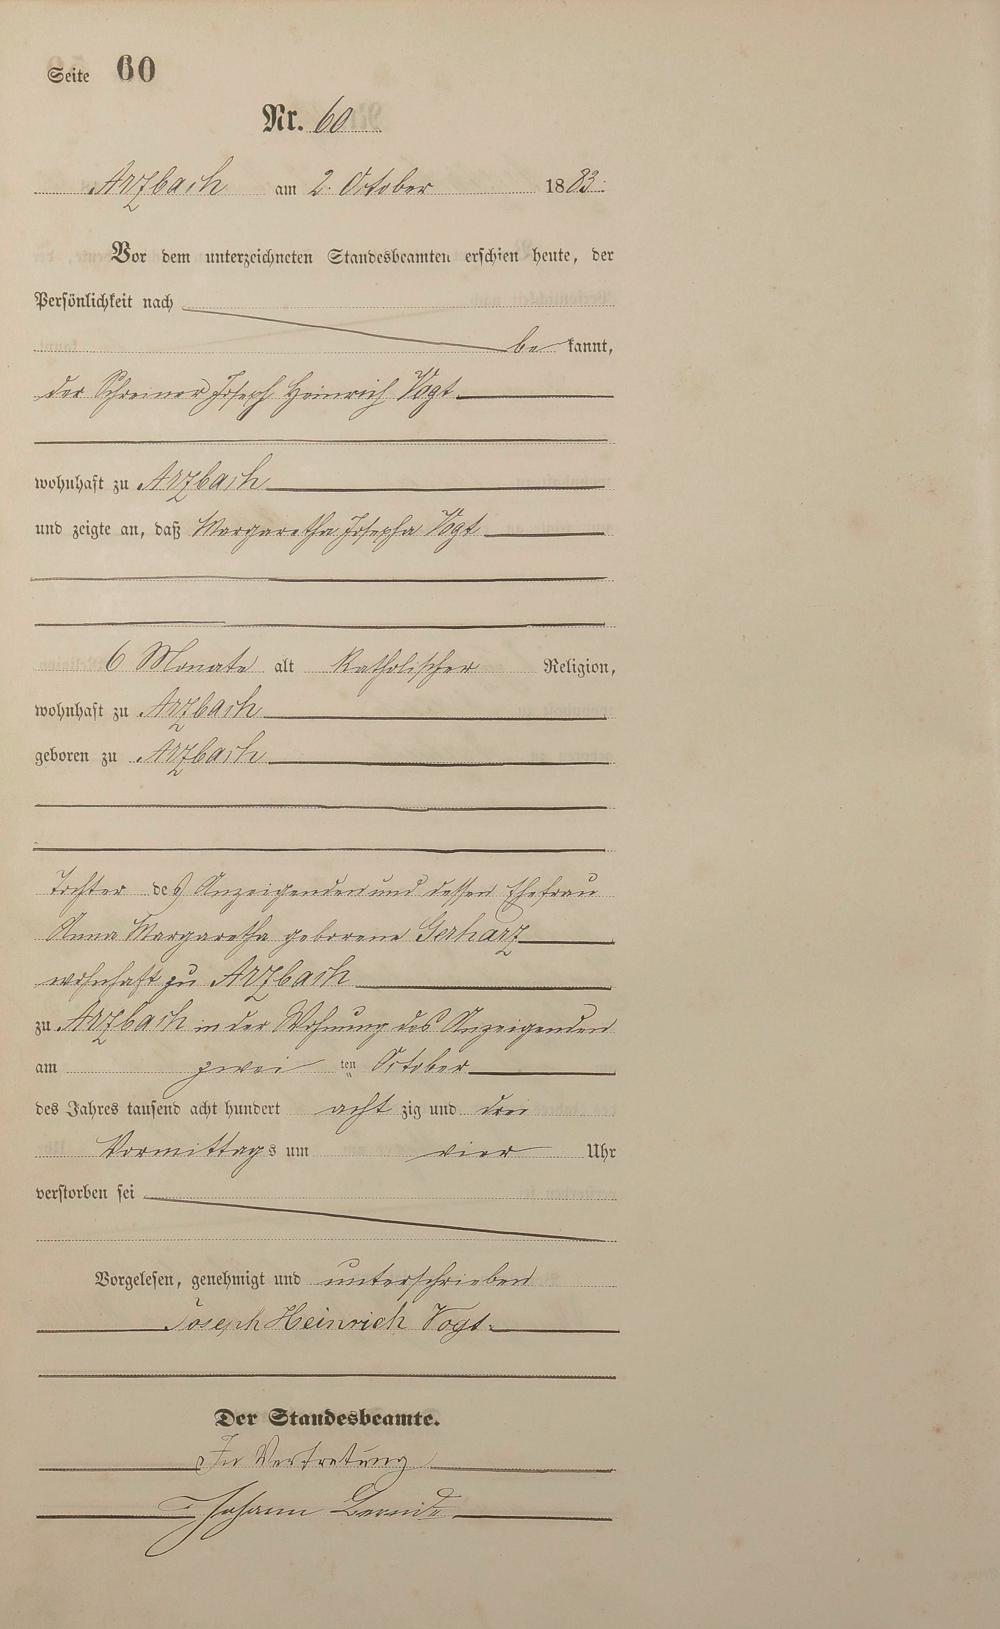 Seite 60
Nr. 60
Arzbach am 2. October 1883.
Vor dem unterzeichneten Standesbeamten erschien heute, der
Persönlichkeit nach
bekannt,
der Schreiner Joseph Heinrich Vogt
wohnhaft zu Arzbach
und zeigte an, daß Margaretha Josepha Vogt
6 Monate alt katholischer Religion,
wohnhaft zu Arzbach
geboren zu Arzbach
Tochter des Anzeigenden und dessen Ehefrau
Anna Margaretha geborene Gerharz
wohnhaft zu Arzbach
zu Arzbach in der Wohnung des Anzeigenden
am zweiten October
des Jahres tausend acht hundert achtzig und drei
Vormittags um vier Uhr
verstorben sei
Vorgelesen, genehmigt und unterschrieben
Joseph Heinrich Vogt.
Der Standesbeamte.
In Vertretung
Johann